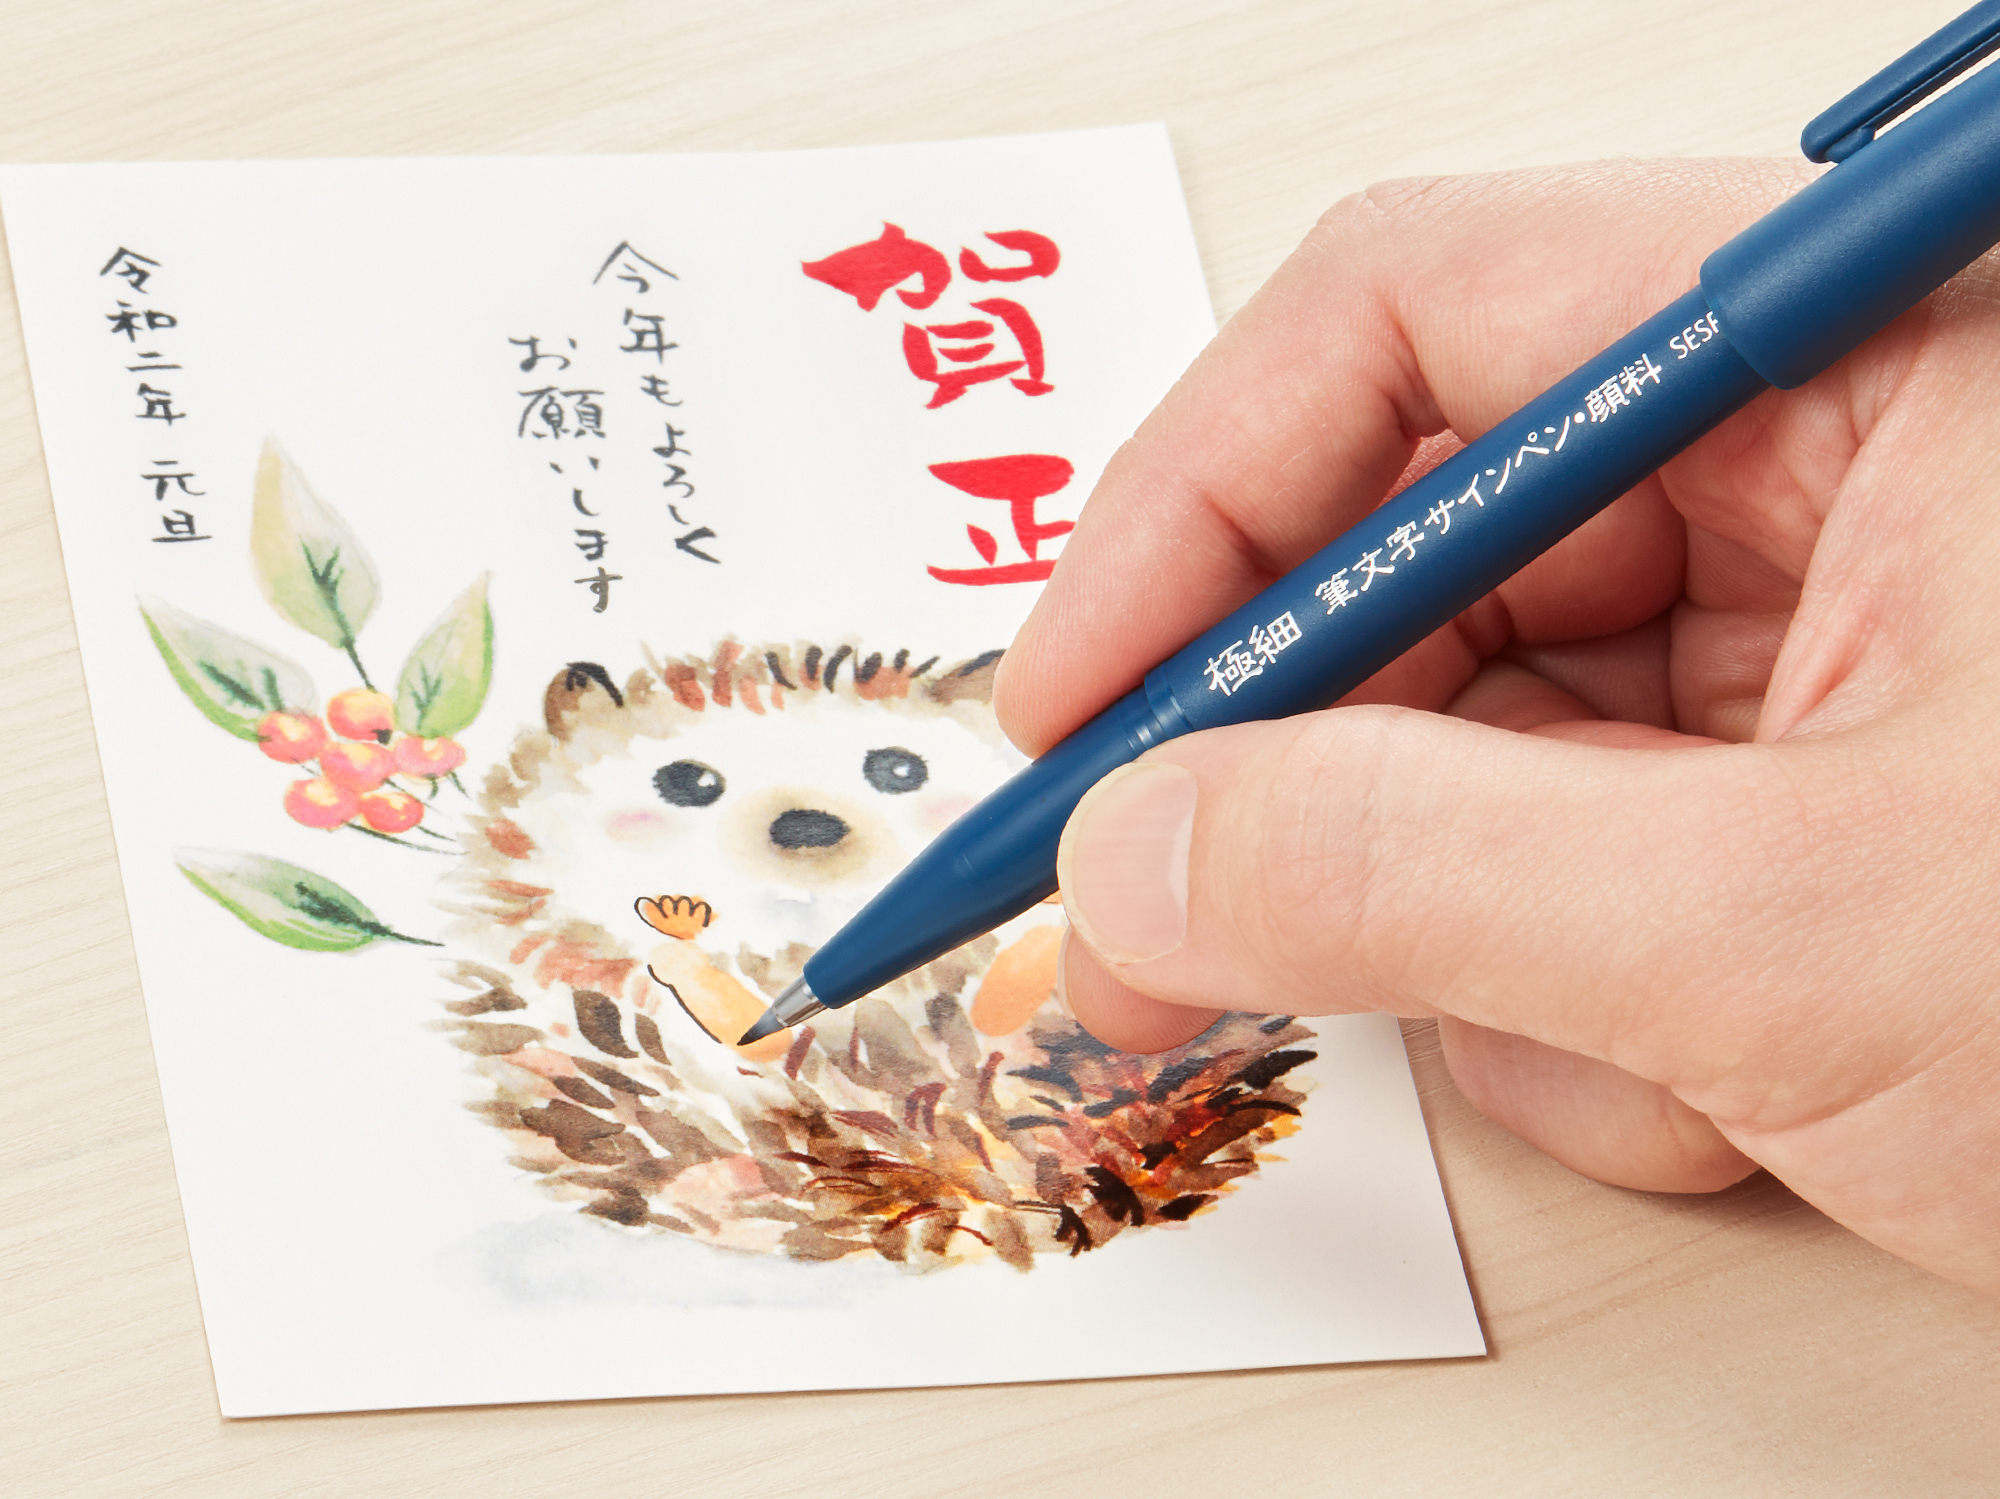 賀正
今年もよろしく
お願いします
令和二年 元旦
極細 筆文字サインペン・顔料 SESF